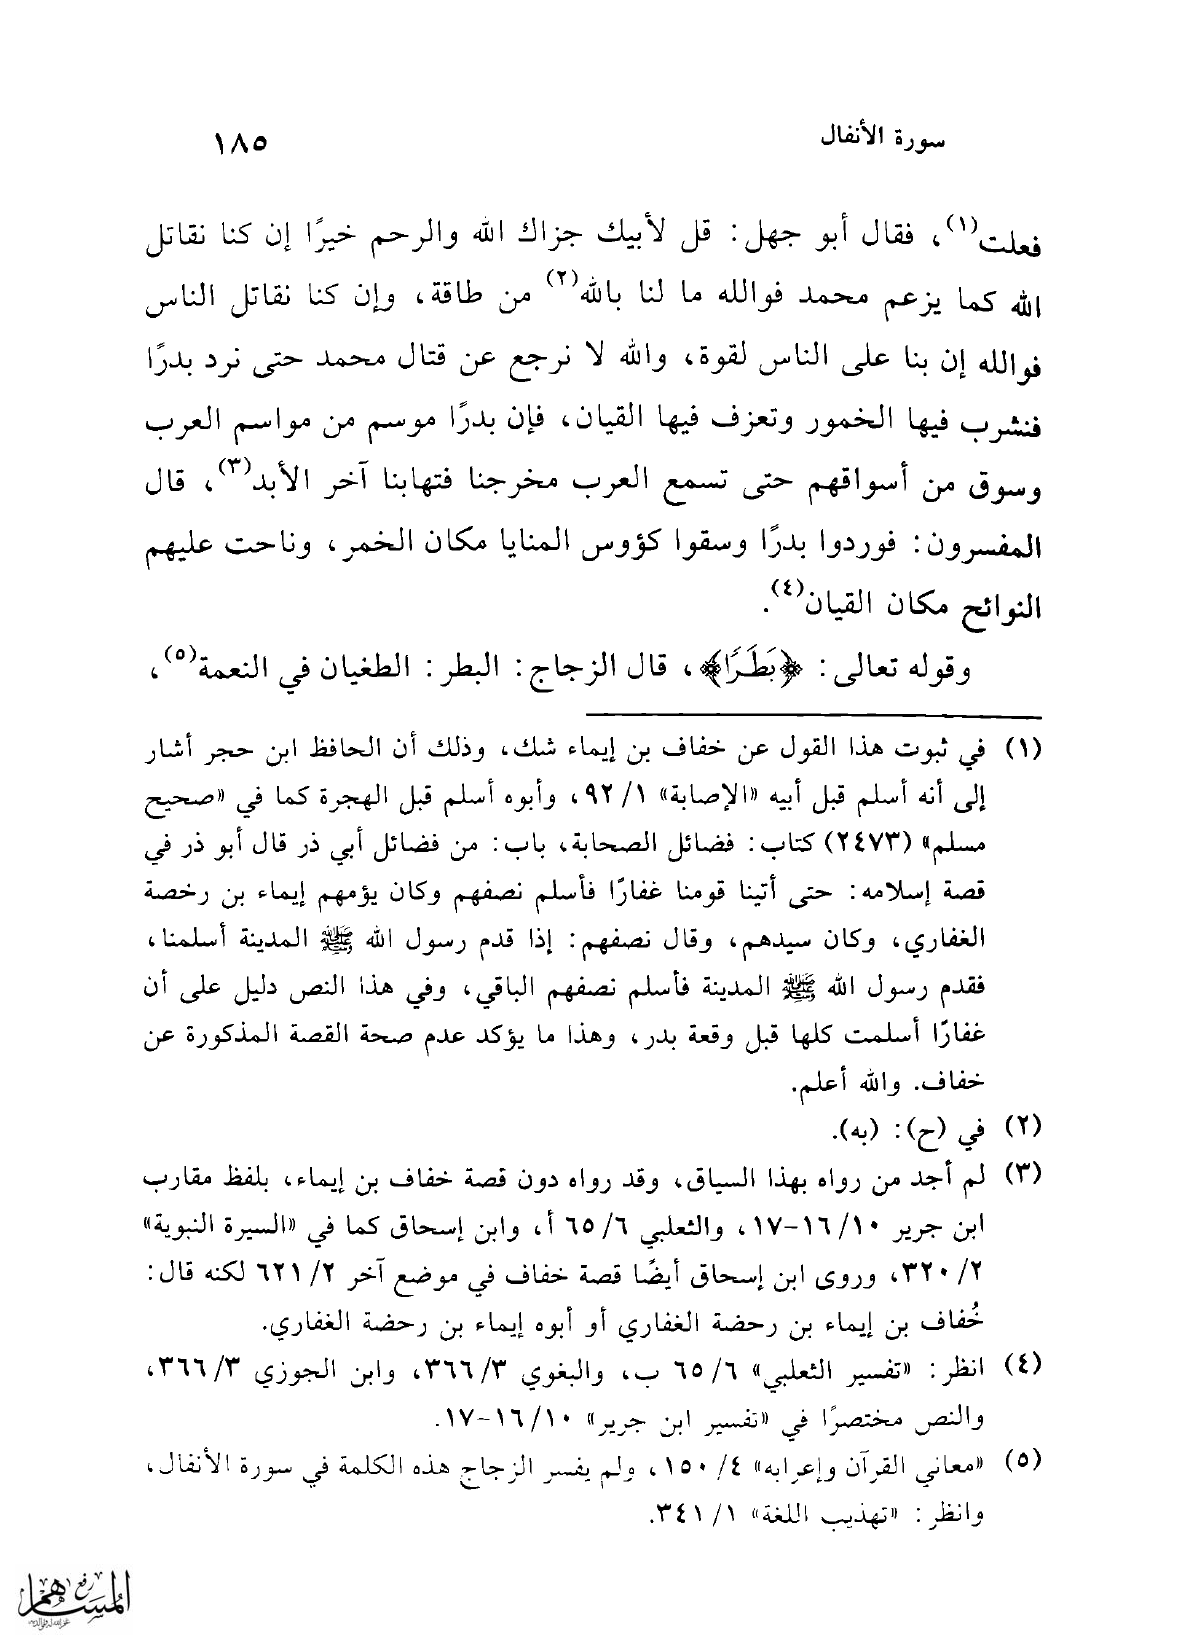 سورة الأنفال ١٨٥
فعلت(١)، فقال أبو جهل: قل لأبيك جزاك الله والرحم خيرًا إن كنا نقاتل
الله كما يزعم محمد فوالله ما لنا بالله(٢) من طاقة، وإن كنا نقاتل الناس
فوالله إن بنا على الناس لقوة، والله لا نرجع عن قتال محمد حتى نرد بدرًا
فنشرب فيها الخمور وتعزف فيها القيان، فإن بدرًا موسم من مواسم العرب
وسوق من أسواقهم حتى تسمع العرب مخرجنا فتهابنا آخر الأبد(٣)، قال
المفسرون: فوردوا بدرًا وسقوا كؤوس المنايا مكان الخمر، وناحت عليهم
النوائح مكان القيان(٤).
وقوله تعالى: ﴿بَطَرًا﴾، قال الزجاج: البطر: الطغيان في النعمة(٥)،
(١) في ثبوت هذا القول عن خفاف بن إيماء شك، وذلك أن الحافظ ابن حجر أشار
إلى أنه أسلم قبل أبيه «الإصابة» ١/ ٩٢، وأبوه أسلم قبل الهجرة كما في «صحيح
مسلم» (٢٤٧٣) كتاب: فضائل الصحابة، باب: من فضائل أبي ذر قال أبو ذر في
قصة إسلامه: حتى أتينا قومنا غفارًا فأسلم نصفهم وكان يؤمهم إيماء بن رخصة
الغفاري، وكان سيدهم، وقال نصفهم: إذا قدم رسول الله ﷺ المدينة أسلمنا،
فقدم رسول الله ﷺ المدينة فأسلم نصفهم الباقي، وفي هذا النص دليل على أن
غفارًا أسلمت كلها قبل وقعة بدر، وهذا ما يؤكد عدم صحة القصة المذكورة عن
خفاف. والله أعلم.
(٢) في (ح): (به).
(٣) لم أجد من رواه بهذا السياق، وقد رواه دون قصة خفاف بن إيماء، بلفظ مقارب
ابن جرير ١٠/ ١٦-١٧، والثعلبي ٦/ ٦٥ أ، وابن إسحاق كما في «السيرة النبوية»
٢/ ٣٢٠، وروى ابن إسحاق أيضًا قصة خفاف في موضع آخر ٢/ ٦٢١ لكنه قال:
خُفاف بن إيماء بن رحضة الغفاري أو أبوه إيماء بن رحضة الغفاري.
(٤) انظر: «تفسير الثعلبي» ٦/ ٦٥ ب، والبغوي ٣/ ٣٦٦، وابن الجوزي ٣/ ٣٦٦،
والنص مختصرًا في «تفسير ابن جرير» ١٠/ ١٦-١٧.
(٥) «معاني القرآن وإعرابه» ٤/ ١٥٠، ولم يفسر الزجاج هذه الكلمة في سورة الأنفال،
وانظر: «تهذيب اللغة» ١/ ٣٤١.